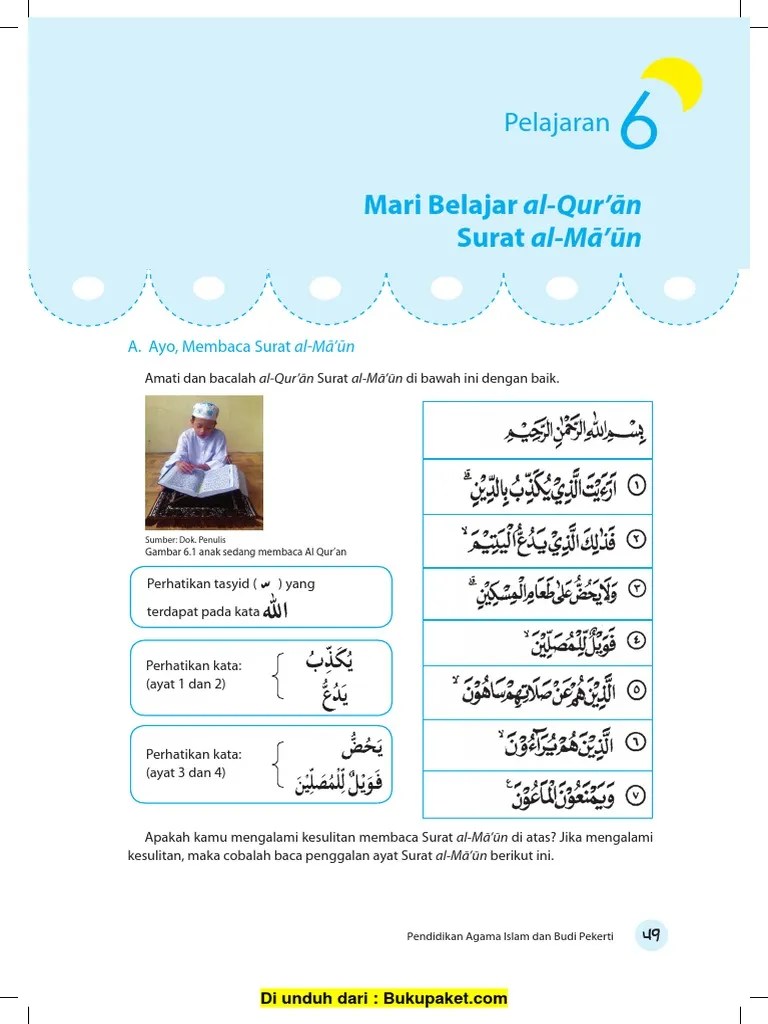 Pelajaran 6
Mari Belajar al-Qur’ān
Surat al-Mā’ūn
A. Ayo, Membaca Surat al-Mā’ūn
Amati dan bacalah al-Qur’ān Surat al-Mā’ūn di bawah ini dengan baik.
Sumber: Dok. Penulis
Gambar 6.1 anak sedang membaca Al Qur’an
Perhatikan tasyid ( ّ ) yang
terdapat pada kata اللّٰه
Perhatikan kata:
(ayat 1 dan 2)
يُكَذِّبُ
يَدُعُّ
Perhatikan kata:
(ayat 3 dan 4)
يَحُضُّ
فَوَيْلٌ لِّلْمُصَلِّيْنَ
بِسْمِ اللّٰهِ الرَّحْمٰنِ الرَّحِيْمِ
١ اَرَءَيْتَ الَّذِيْ يُكَذِّبُ بِالدِّيْنِۗ
٢ فَذٰلِكَ الَّذِيْ يَدُعُّ الْيَتِيْمَۙ
٣ وَلَا يَحُضُّ عَلٰى طَعَامِ الْمِسْكِيْنِۗ
٤ فَوَيْلٌ لِّلْمُصَلِّيْنَۙ
٥ الَّذِيْنَ هُمْ عَنْ صَلَاتِهِمْ سَاهُوْنَۙ
٦ الَّذِيْنَ هُمْ يُرَاۤءُوْنَۙ
٧ وَيَمْنَعُوْنَ الْمَاعُوْنَࣖ
Apakah kamu mengalami kesulitan membaca Surat al-Mā’ūn di atas? Jika mengalami
kesulitan, maka cobalah baca penggalan ayat Surat al-Mā’ūn berikut ini.
Pendidikan Agama Islam dan Budi Pekerti 49
Di unduh dari : Bukupaket.com